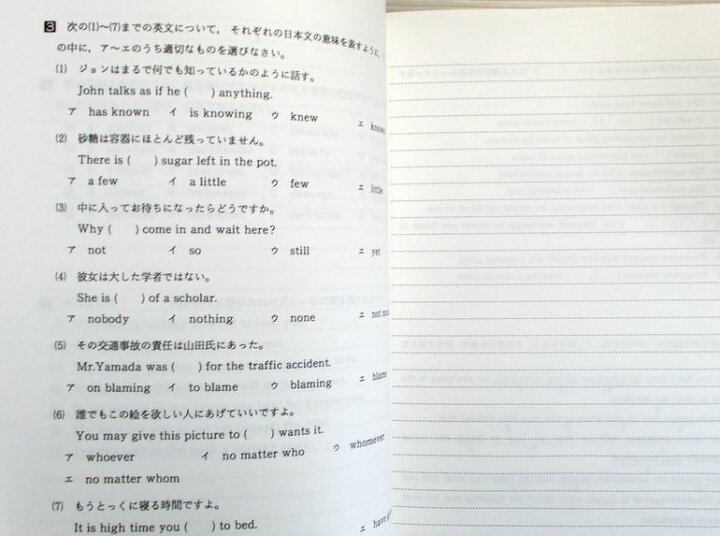 3 次の(1)~(7)までの英文について，それぞれの日本文の意味を表すように，
の中に，ア~エのうち適切なものを選びなさい。
(1) ジョンはまるで何でも知っているかのように話す。
John talks as if he (　　) anything.
ア has known イ is knowing ウ knew エ knows
(2) 砂糖は容器にほとんど残っていません。
There is (　　) sugar left in the pot.
ア a few イ a little ウ few エ little
(3) 中に入ってお待ちになったらどうですか。
Why (　　) come in and wait here?
ア not イ so ウ still エ yet
(4) 彼女は大した学者ではない。
She is (　　) of a scholar.
ア nobody イ nothing ウ none エ not
(5) その交通事故の責任は山田氏にあった。
Mr.Yamada was (　　) for the traffic accident.
ア on blaming イ to blame ウ blaming エ blame
(6) 誰でもこの絵を欲しい人にあげていいですよ。
You may give this picture to (　　) wants it.
ア whoever イ no matter who ウ whomever
エ no matter whom
(7) もうとっくに寝る時間ですよ。
It is high time you (　　) to bed.
エ have